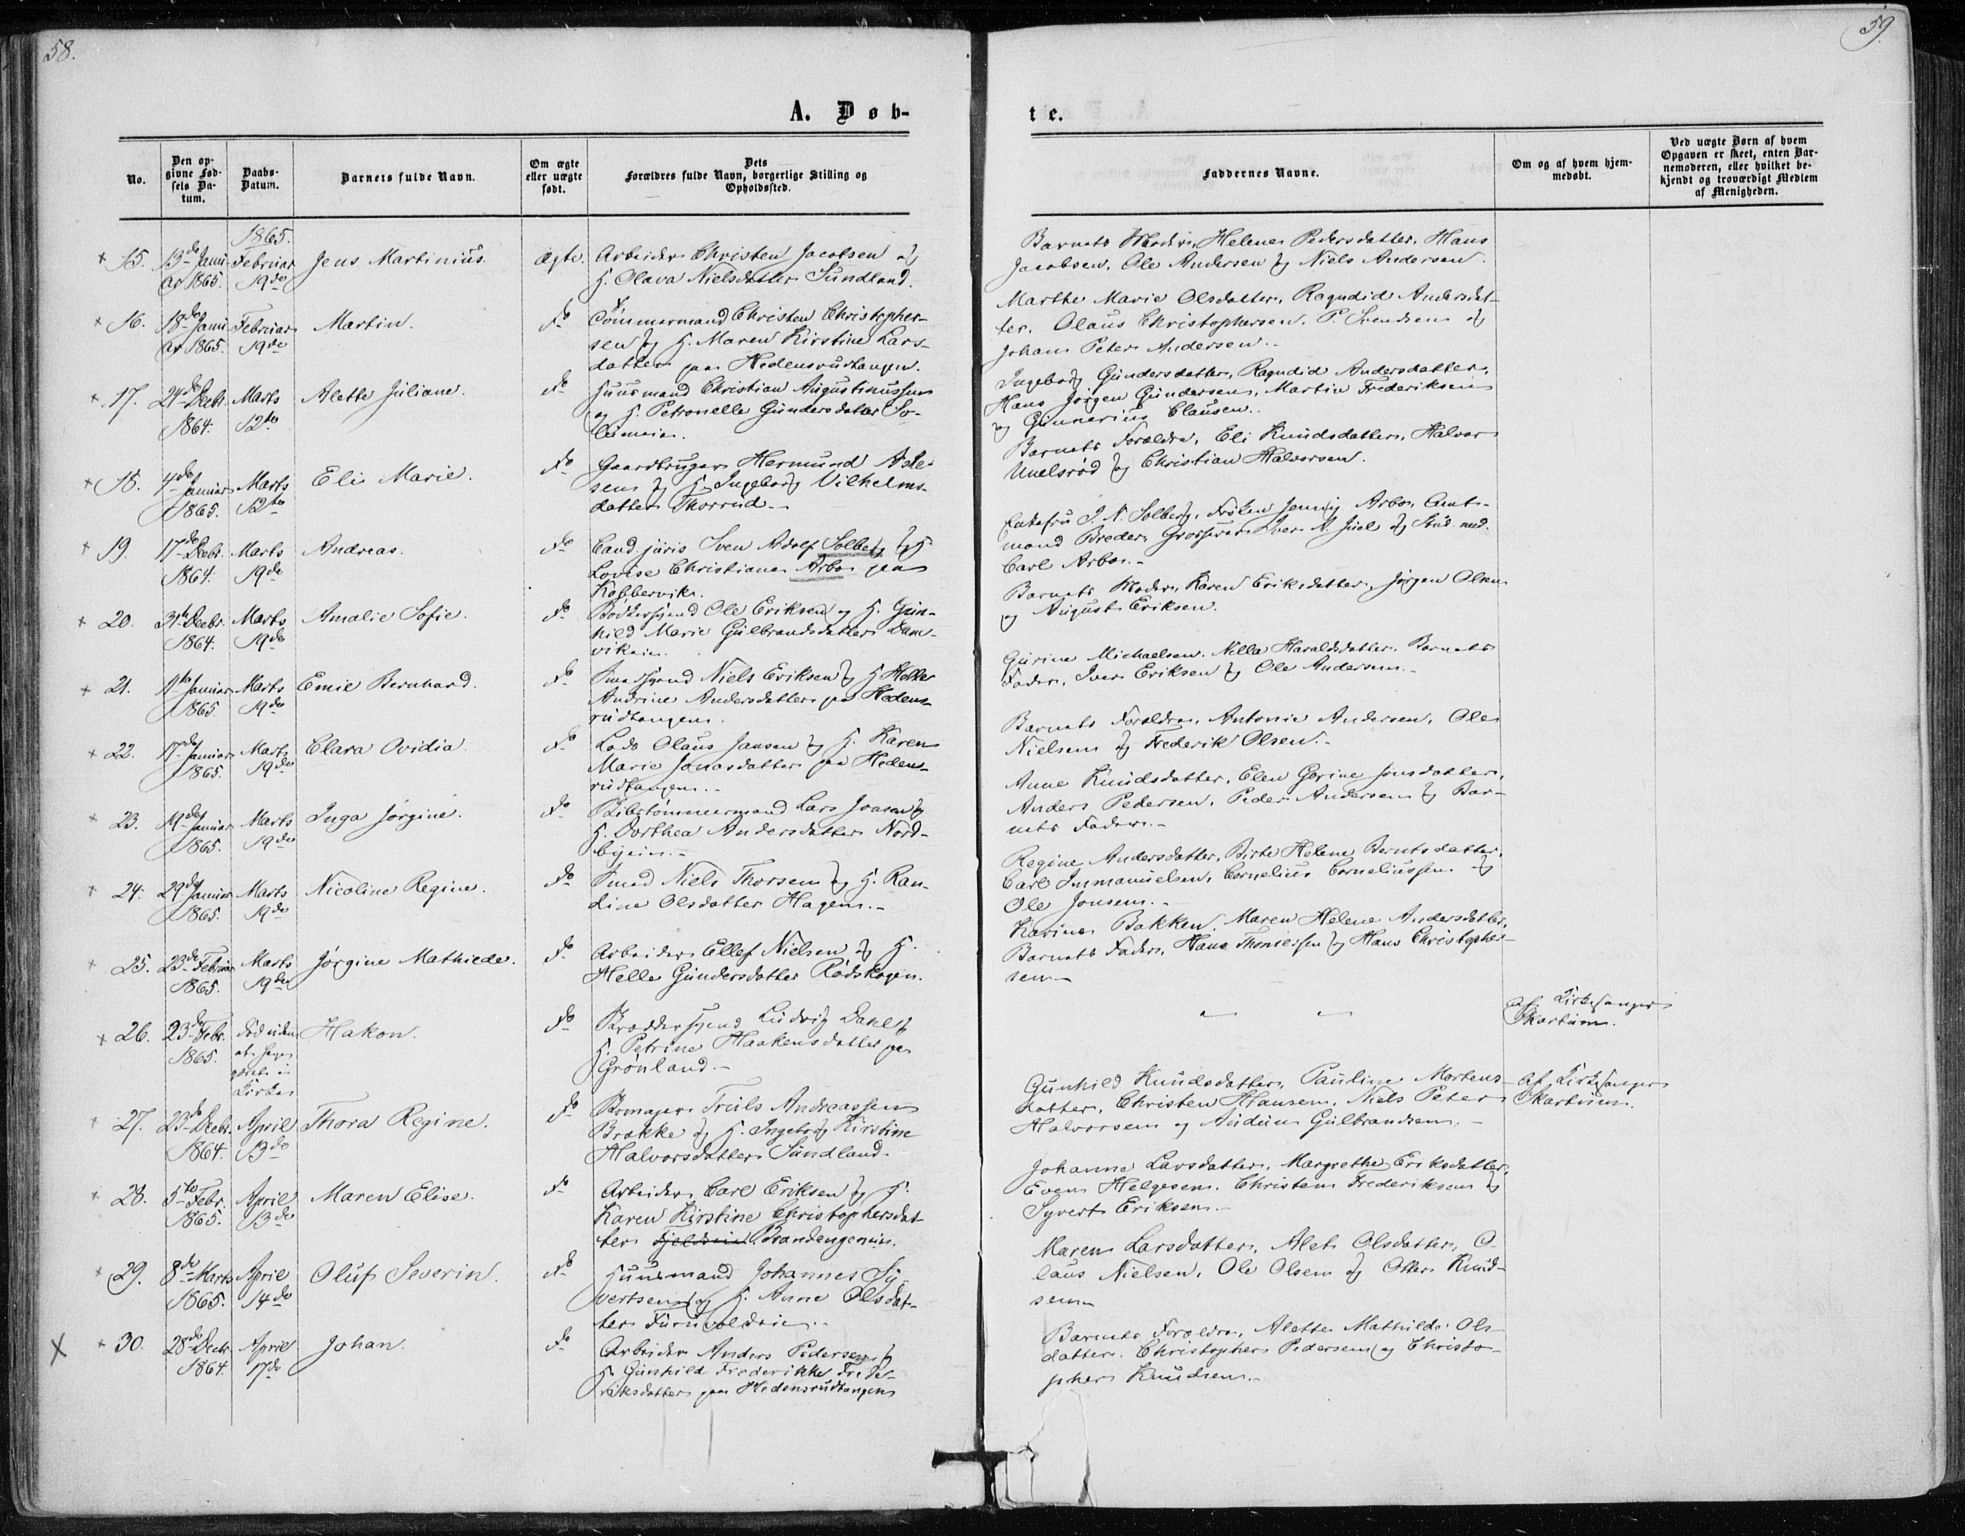 58.
59.
A. Døb-
te.
No.
Den op-
givne Fød-
sels Da-
tum.
Daabs-
Datum.
Barnets fulde Navn.
Om ægte
eller uægte
født.
Dets
Forældres fulde Navn, borgerlige Stilling og
Opholdssted.
Faddernes Navne.
Om og af hvem hjem-
medøbt.
Ved uægte Børn af hvem
Opgaven er skeet, enten Bar-
nemoderen, eller hvilket be-
kjendt og troværdigt Medlem
af Menigheden.
1865.
+ 15. 13de Janu- Februar Jens Martinius. ægte. Arbeider Christen Jacobsen og
ar 1865. 19de H. Olava Nielsdatter Sundland.
Barnets Moder, Helene Pedersdatter, Hans
Jacobsen, Ole Andersen og Niels Andersen.
+ 16. 18de Janu- Februar Martin. do Tømmermand Christen Christopher-
ar 1865. 19de sen og H. Maren Kirstine Lars-
datter paa Hedensrudtangen.
Marthe Marie Olsdatter, Ragndid Andersdat-
ter, Olaus Christophersen, P. Svendsen og
Johan Peter Andersen.
+ 17. 24de Decbr. Marts Alette Juliane. do Huusmand Christian Augustinussen
1864. 12te og H. Petronelle Gundersdatter So-
lumeie.
Ingeborg Gundersdatter, Ragndid Andersdatter,
Hans Jørgen Gundersen, Martin Frederiksen
og Gunnerius Clausen.
+ 18. 4de Januar Marts Eli Marie. do Gaardbruger Hermund Asle-
1865. 12te sen og H. Ingeborg Vilhelms-
datter Thorrud.
Barnets Forældre, Eli Knudsdatter, Halvor
Unelsrød og Christian Halvorsen.
+ 19. 17de Decbr. Marts Andreas. do Cand juris Sven Adolf Solberg og H
1864. 19de Lovise Christiane Arbo paa
Kobbervik.
J. N. Solberg, Frøken Jenny Arbo, Amt-
mand Breder, Grosserer Iver N. Juel og Stud. med.
Carl Arbo.
+ 20. 31te Decbr. Marts Amalie Sofie. do Bødkersvend Ole Eriksen og H. Gun-
1864. 19de hild Marie Gulbrandsdatter Dam-
vikeie.
Barnets Moder, Karen Eriksdatter, Jørgen Olsen
og August Eriksen.
+ 21. 11te Januar Marts Emil Bernhard. do Smedsvend Niels Eriksen og H Helle
1865. 19de Andrine Andersdatter paa Hedens-
rudtangen.
Gurine Michaelsen, Nilla Haraldsdatter, Barnets
Fader, Iver Eriksen og Ole Andersen.
+ 22. 17de Januar Marts Clara Ovidia. do Lods Olaus Jansen og H. Karen
1865. 19de Marie Jonasdatter paa Hedens-
rudtangen.
Barnets Forældre, Antonie Andersen, Ole
Nielsen og Frederik Olsen.
+ 23. 19de Januar Marts Inga Jørgine. do Skibstømmermand Lars Joasen og
1865. 19de H. Dorthea Andersdatter Nord-
byeie.
Anne Knudsdatter, Elen Gorine Jonsdatter,
Anders Pedersen, Peder Andersen og Bar-
nets Fader.
+ 24. 29de Januar Marts Nicoline Regine. do Smed Niels Thorsen og H. Ran-
1865. 19de dine Olsdatter Hagen.
Regine Andersdatter, Birte Helene Berntsdatter,
Carl Immanuelsen, Cornelius Corneliussen og
Ole Jonsen.
+ 25. 23de Februar Marts Jørgine Mathilde. do Arbeider Ellef Nielsen og H.
1865. 19de Helle Gundersdatter Rødskogen.
Karine Bakken, Maren Helene Andersdatter,
Barnets Fader, Hans Thoniessen og Hans Christopher-
sen.
+ 26. 23de Febr. Død uden Hakon. do Ludvig Dahl og
1865. at
i
Kirken H. Petrine Haakensdatter paa
Grønland.
" "
af Kirkesanger
Skartum.
+ 27. 23de Decbr. April Thora Regine. do Truls Andreassen
1864. 13de Brække og H. Ingeborg Kirstine
Halvorsdatter Sundland.
Gunhild Knudsdatter, Pauline Martens-
datter, Christen Hansen, Niels Peter
Halvorsen og Audun Gulbrandsen.
af Kirkesanger
Skartum.
+ 28. 5te Febr. April Maren Elise. do Arbeider Carl Eriksen og H.
1865. 13de Karen Kirstine Christophersdat-
ter Brandengen.
Johanne Larsdatter, Margrethe Eriksdatter,
Even Helgesen, Christen Frederiksen og
Syvert Eriksen.
+ 29. 8de Marts April Oluf Severin. do Huusmand Johannes Sy-
1865. 14de vertsen og H. Anne Olsdat-
ter
Maren Larsdatter, Alet Olsdatter, O-
laus Nielsen, Ole Olsen og Otter Knud-
sen.
X + 30. 28de Decbr. April Johan. do Arbeider Anders Pedersen og
1864. 17de H. Gunhild Frederikke Frede-
riksdatter paa Hedensrudtangen
Barnets Forældre, Alette Mathilde Ols-
datter, Christopher Pedersen og Christo-
pher Knudsen.